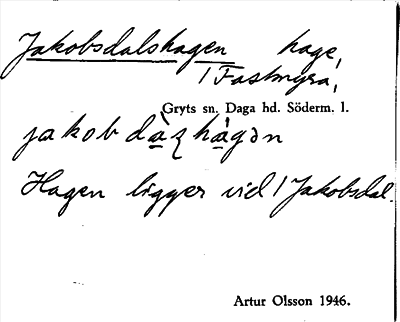 Jakobsdalshagen hage,
/ Fastmyra,
Gryts sn. Daga hd. Söderm. l.
jakob dàʐhàgən
Hagen ligger vid / Jakobsdal.
Artur Olsson 1946.